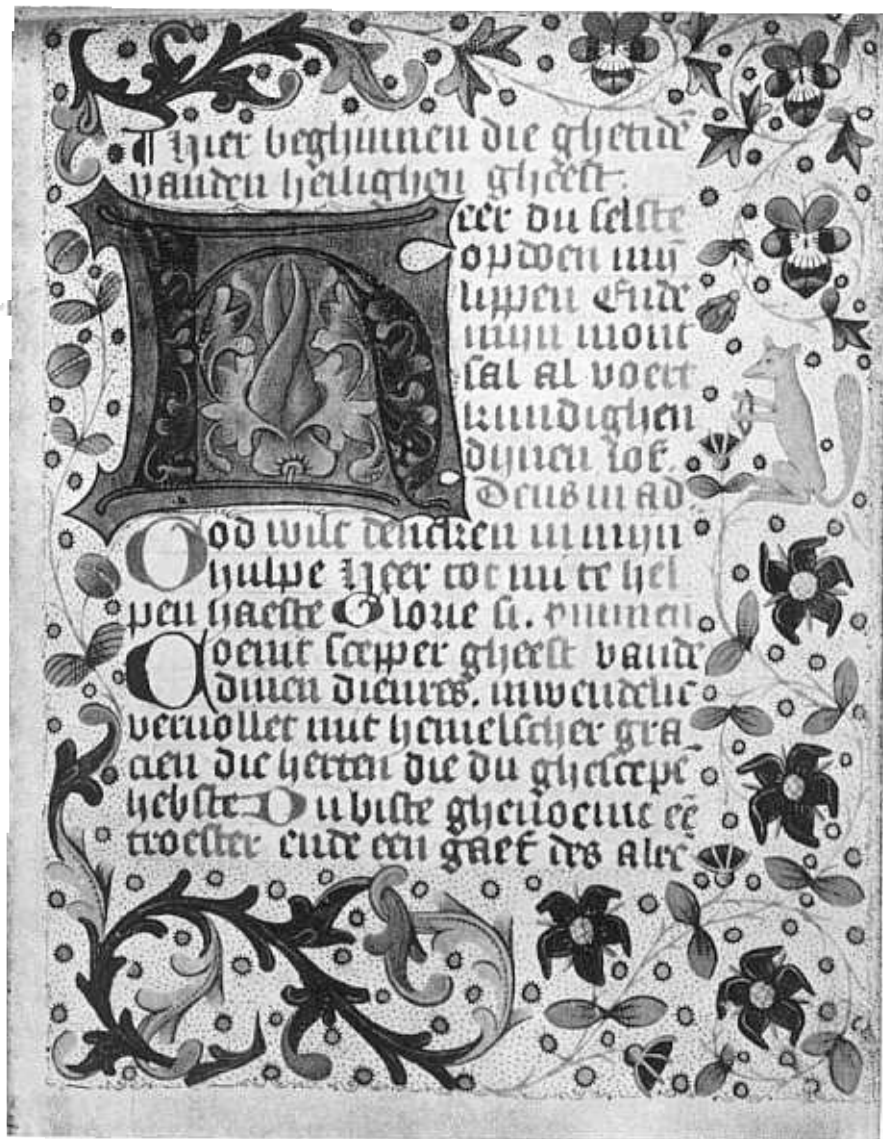 ¶ Hier beghinnen die ghetidē
vanden heilighen gheest.
Heer du selste
opdoen mijn
lippen Ende
mijn mont
sal al voert
kundighen
dijnen lof.
Deus in ad.
God wilt dencken in mijn
hulpe Heer tot mi te hel
pen haeste Glorie si. 
Coemt scepper gheest vande
dinen dienres. inwendelic
veruollet mit hemelscher gra
cien die herten die du ghescepē
hebste Du biste ghenoemt eē
troester ende een gaef des alre